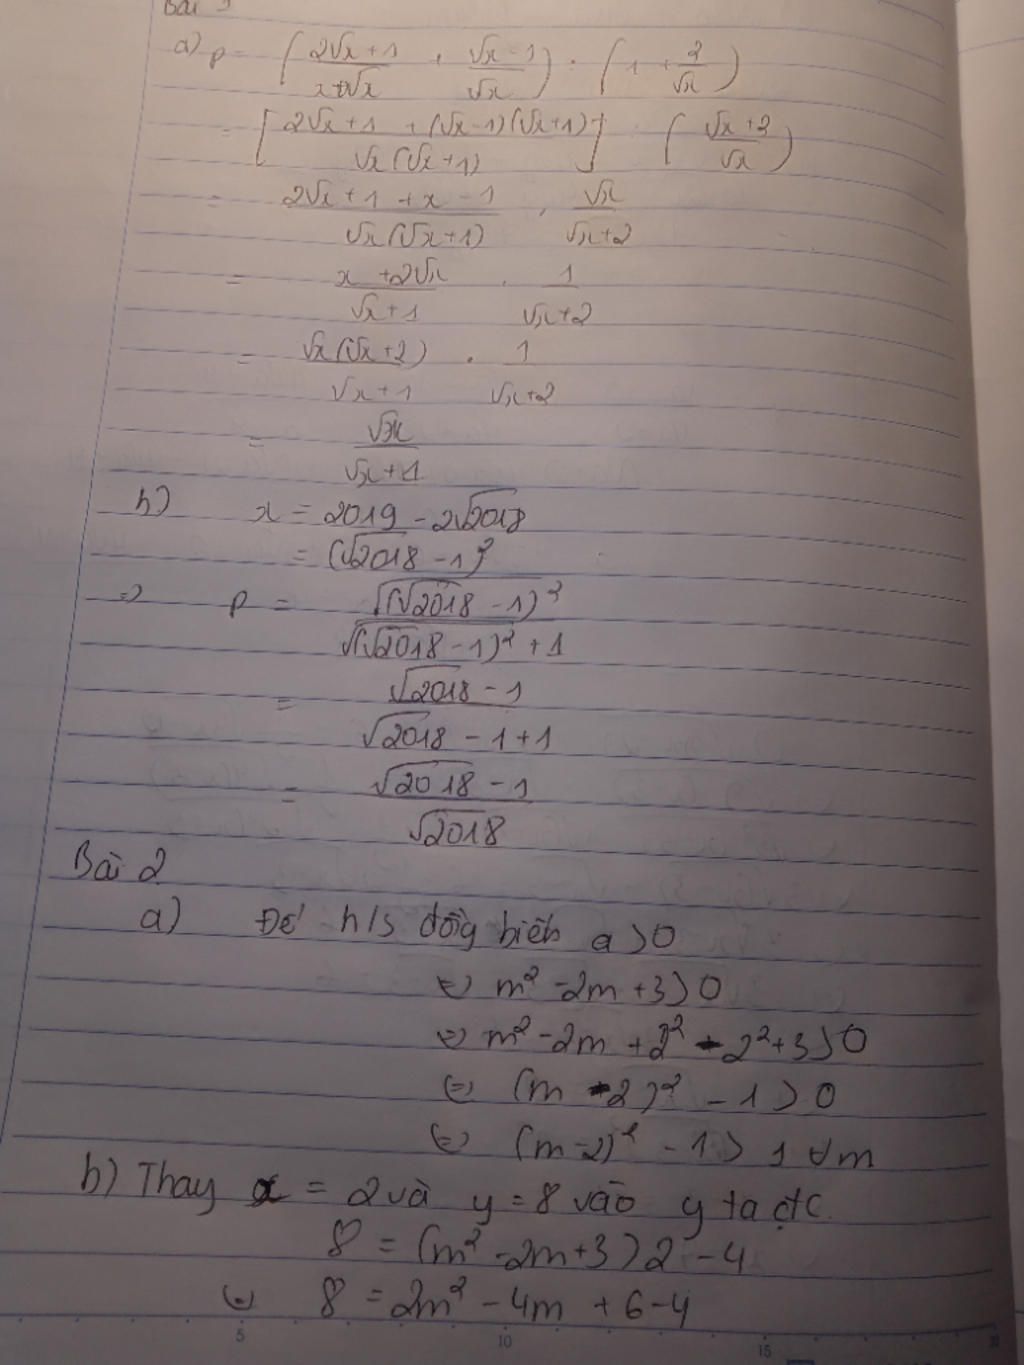 Bài
a) P = ( (2√x + 1)/(x+√x) + (√x - 1)/√x ) : ( 1 + 2/√x )
= [ (2√x + 1 + (√x - 1)(√x + 1))/(√x(√x + 1)) ] ( (√x + 2)/√x )
= (2√x + 1 + x - 1)/(√x(√x + 1)) . √x/(√x + 2)
= (x + 2√x)/(√x + 1) . 1/(√x + 2)
= √x(√x + 2)/(√x + 1) . 1/(√x + 2)
= √x/(√x + 1)
b) x = 2019 - 2√2018
= (√2018 - 1)²
=> P = √((√2018 - 1)²)/(√((√2018 - 1)²) + 1)
= (√2018 - 1)/(√2018 - 1 + 1)
= (√2018 - 1)/√2018
Bài 2
a) Để h/s đồng biến a > 0
(=) m² - 2m + 3 > 0
(=) m² - 2m + 2² - 2² + 3 > 0
(=) (m - 2)² - 1 > 0
(=) (m - 2)² - 1 > 1 ∀m
b) Thay x = 2 và y = 8 vào y ta đtc.
8 = (m² - 2m + 3) 2 - 4
(=) 8 = 2m² - 4m + 6 - 4
5 10 15